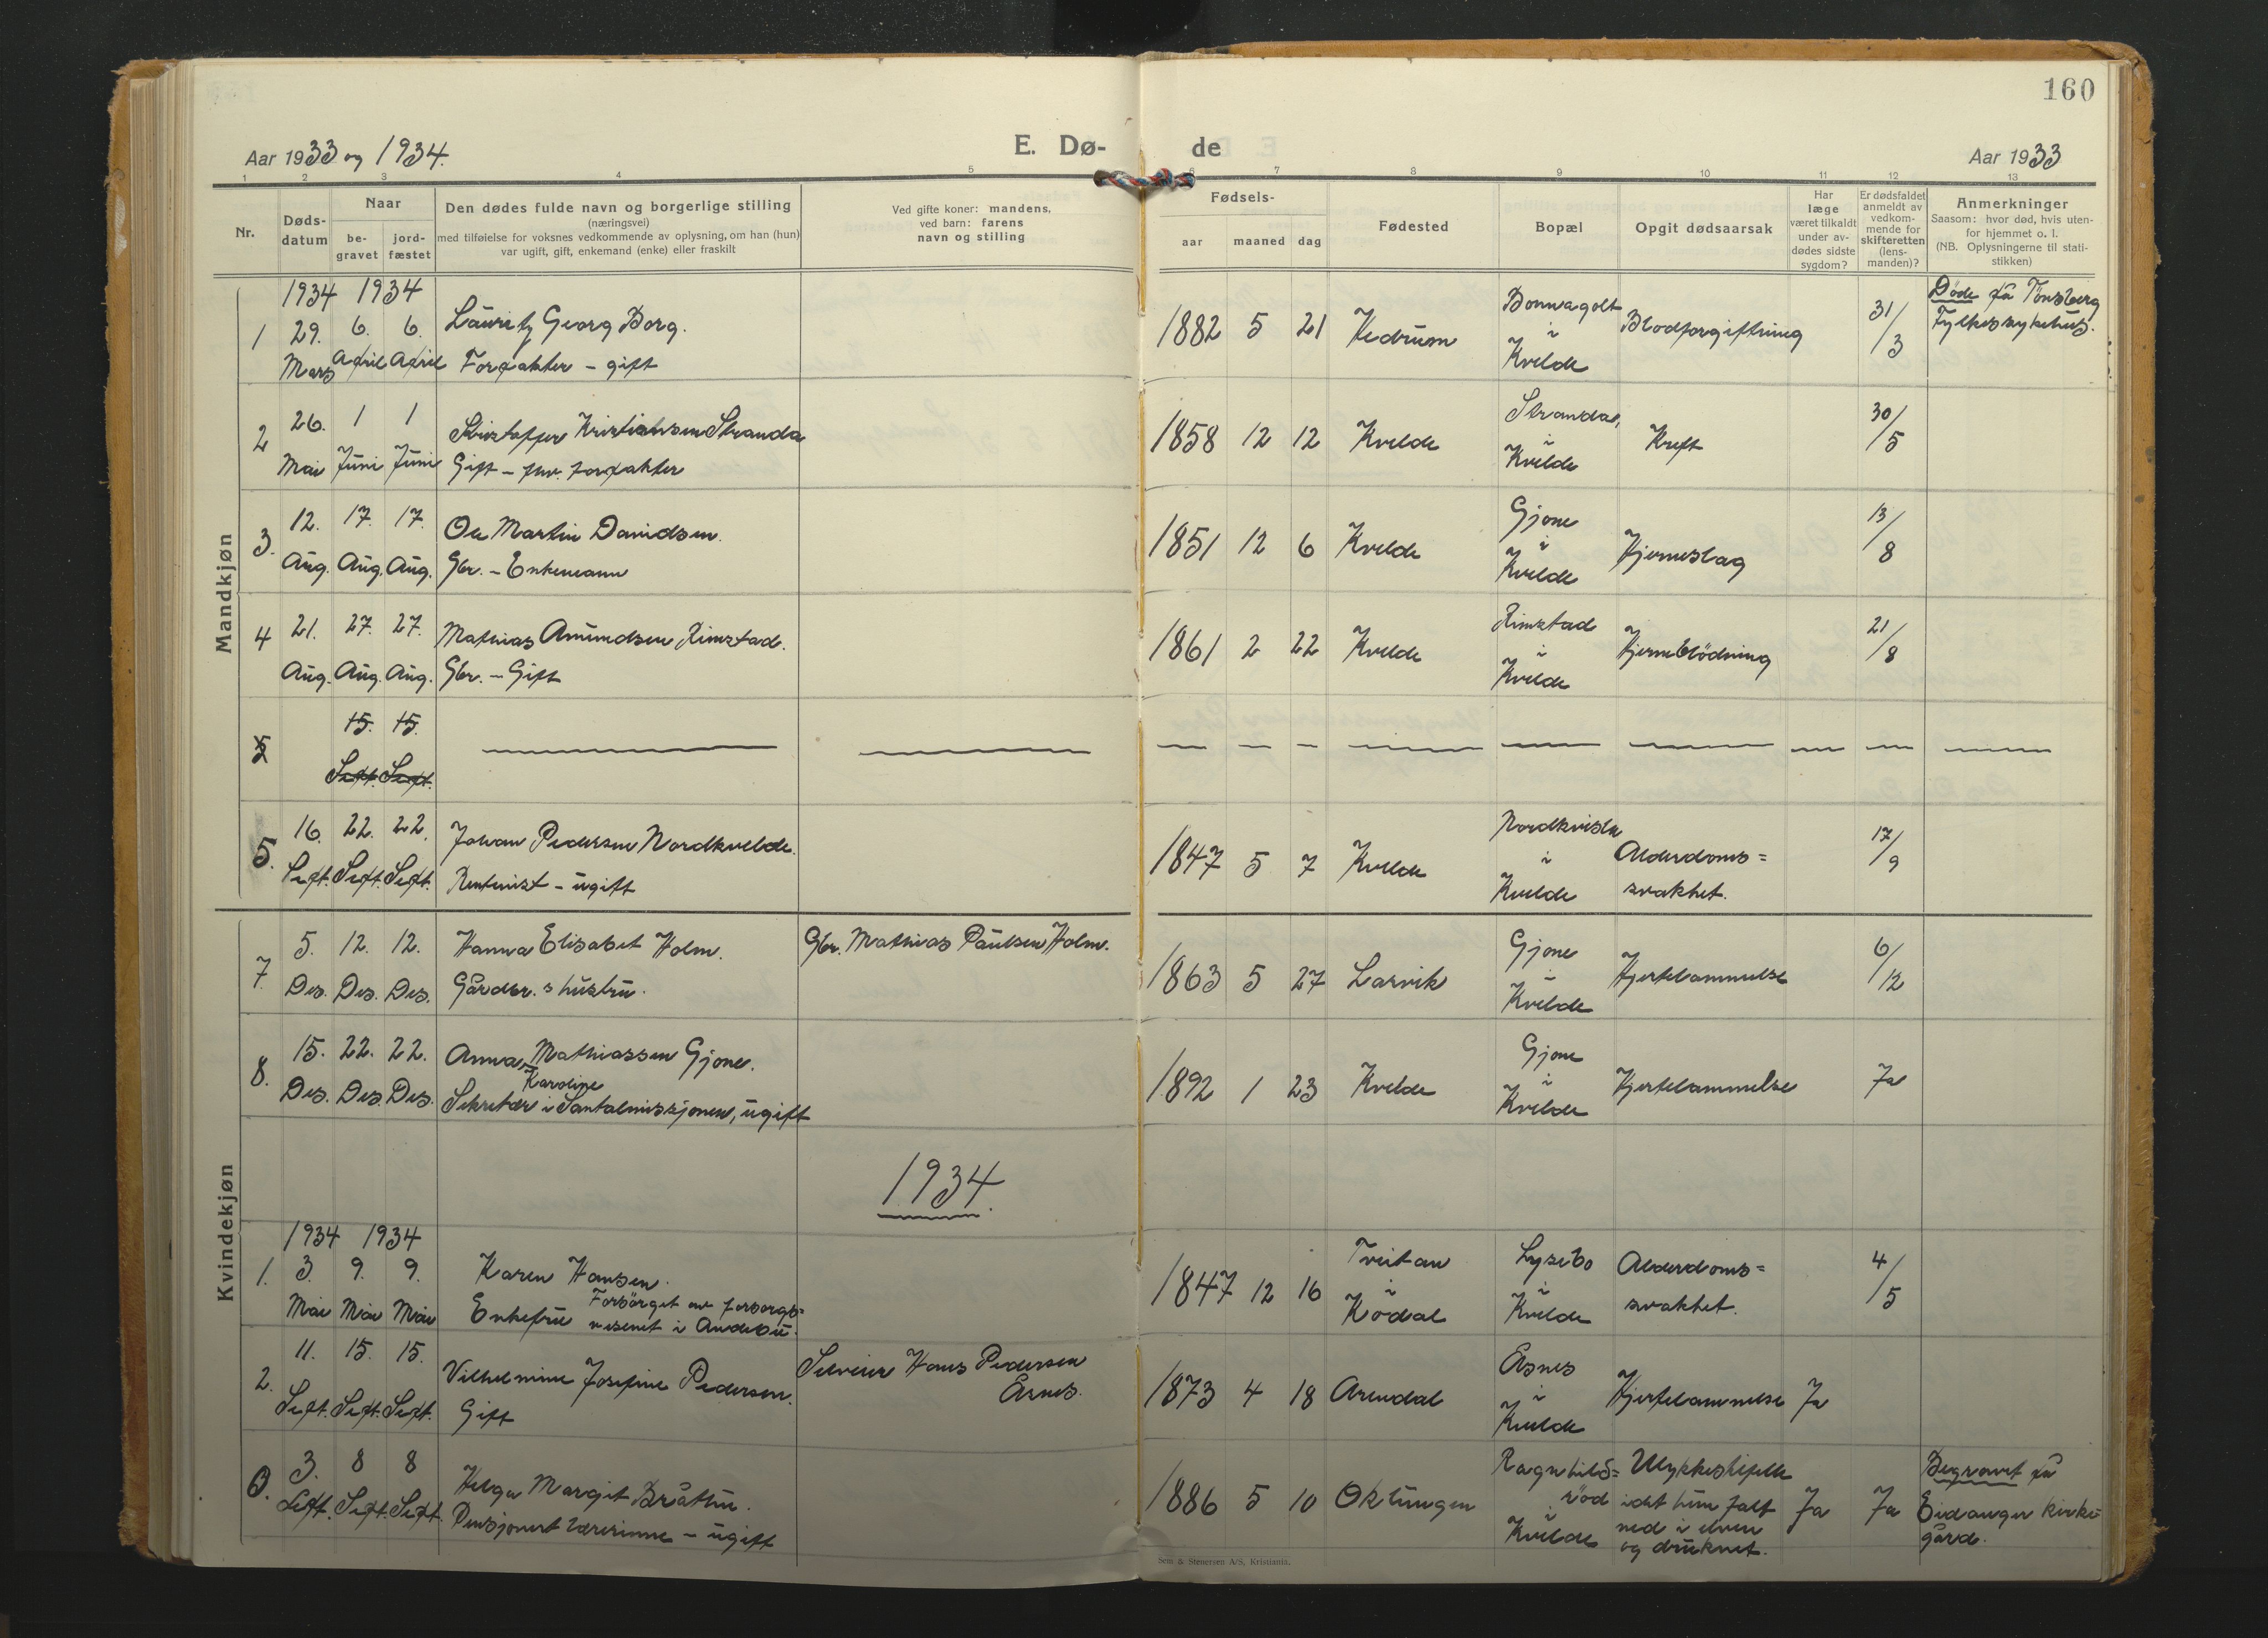 160
Aar 1933 og 1934.
E. Dø-
de
Aar 1933
1 2 3 4 5 6 7 8 9 10 11 12 13
Nr.
Døds-
datum
Naar
be-
gravet
jord-
fæstet
Den dødes fulde navn og borgerlige stilling
(næringsvei)
med tilføielse for voksnes vedkommende av oplysning, om han (hun)
var ugift, gift, enkemand (enke) eller fraskilt
Ved gifte koner: mandens,
ved barn: farens
navn og stilling
Fødsels-
aar maaned dag
Fødested
Bopæl
Opgit dødsaarsak
Har
læge
været tilkaldt
under av-
dødes sidste
sygdom?
Er dødsfaldet
anmeldt av
vedkom-
mende for
skifteretten
(lens-
manden)?
Anmerkninger
Saasom: hvor død, hvis uten-
for hjemmet o. l.
(NB. Oplysningerne til stati-
stikken)
Mandkjøn
1934 1934
1 29. 6. 6. Lauritz Georg Borg.
Mars April April Forpakter - gift
1882 5 21 Hedrum
Bonnagolt
i
Kvelde
Blodforgiftning
31/3
Døde på Tönsberg
Fylkessykehus.
2 26. 1 1 Kristoffer Kristiansen Stranda
Mai Juni Juni Gift - fhv. forpakter
1858 12 12 Kvelde
Strandar,
i
Kvelde
Kreft
30/5
3. 12. 17. 17. Ole Martin Davidsen.
Aug. Aug. Aug. Gbr. - Enkemann
1851 12 6 Kvelde
Gjone
i
Kvelde
Hjerneslag
13/8
4 21. 27. 27. Mathias Amundsen Rimstad.
Aug. Aug. Aug. Gbr. - Gift
1861 2 22 Kvelde
Rimstad
i
Kvelde
Hjerneblödning
21/8
5 15. 15.
Sept. Sept.
5. 16. 22. 22. Johan Pedersen Nordkvelde.
Sept. Sept. Sept. Rentenist - ugift
1847 5 7 Kvelde
i
Kvelde
Alderdoms=
svakhet.
17/9
Kvindekjøn
7. 5. 12. 12. Hanna Elisabet Holm.
Des. Des. Des. Gårdbr.s hustru.
Gbr. Mathias Paulsen Holm.
1863 5 27 Larvik
Gjone
i
Kvelde
Hjertelammelse
6/12
8. 15. 22. 22. Anna Mathiassen Gjone.
Karoline
Des. Des. Des. Sekretær i Santalmissjonen, ugift
1892 1 23 Kvelde
Gjone
i
Kvelde
Hjertelammelse
Ja
1934.
1934 1934
1. 3. 9. 9. Karen Hansen.
Mai Mai Mai Enkefru Forsörget av forsorgs=
vesenet i Andebu.
1847 12 16
Tveitan
i
Kodal
Lysebo
i
Kvelde
Alderdoms=
svakhet.
4/5
2. 11. 15. 15. Vilhelmine Josefine Pedersen.
Sept. Sept. Sept. Gift
Selveier Hans Pedersen
Åsnes.
1873 4 18 Arendal
Åsnes
i
Kvelde
Hjertelammelse Ja
3. 3. 8 8 Helga Margit Bråttun.
Sept. Sept. Sept. Pensjonert lærerinne - ugift
1886 5 10 Oklungen
Ragnhilds=
röd
i
Kvelde
Ulykkestilfelle
idet hun falt
ned i elven
og druknet.
Ja Ja
Begravet på
Eidanger kirke=
gård.
Sem & Stenersen A/S, Kristiania.